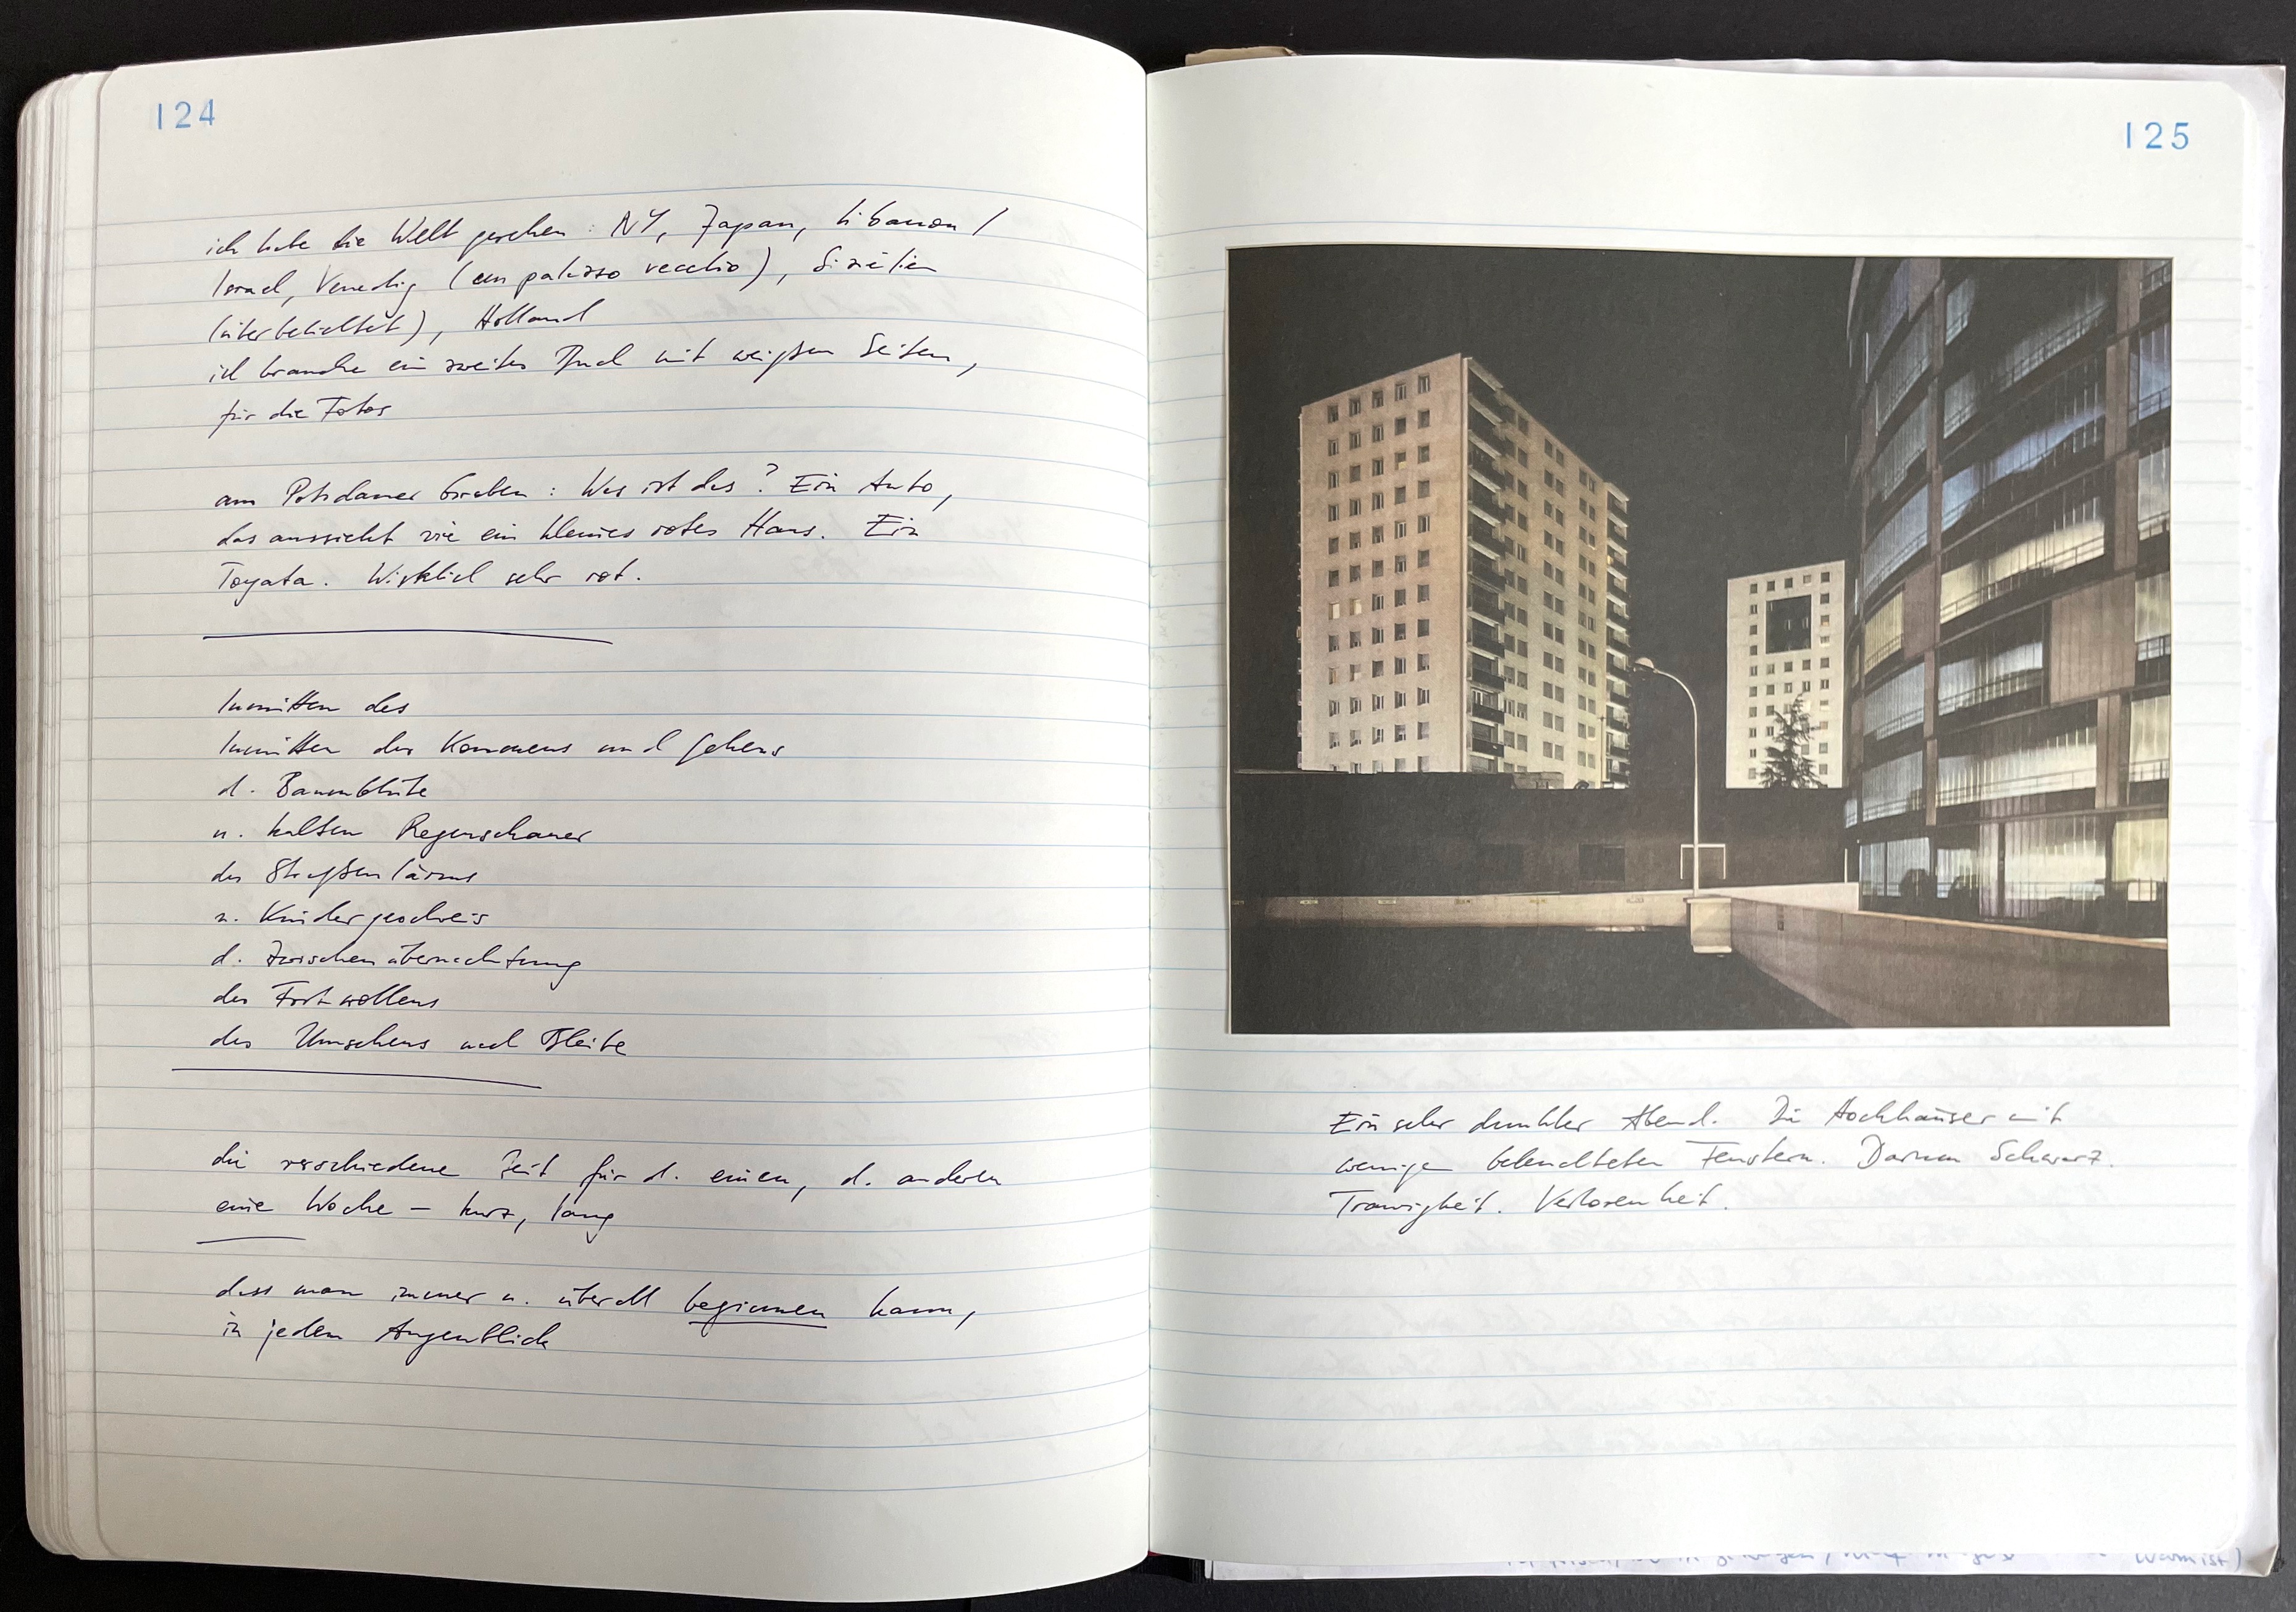 124
ich habe die Welt gesehen : NY, Japan, Libanon /
Israel, Venedig (ein palazzo vecchio), Sizilien
(überbelichtet), Holland
ich brauche ein zweites Buch mit weißen Seiten,
für die Fotos
am Potsdamer Graben : Was ist das? Ein Auto,
das aussieht wie ein kleines rotes Haus. Ein
Toyata. Wirklich sehr rot.
Inmitten des
Inmitten des Kommens und Gehens
d. Baumblüte
u. kalten Regenschauer
des Straßenlärms
u. Kindergeschreis
d. Zwischenübernachtung
des Fortwollens
des Umsehens nach Bleibe
die verschiedene Zeit für d. einen, d. anderen
eine Woche – kurz, lang
dass man immer u. überall beginnen kann,
in jedem Augenblick
125
Ein sehr dunkler Abend. Die Hochhäuser mit
wenigen beleuchteten Fenstern. Darum Schwarz.
Traurigkeit. Verlorenheit.
warm ist)